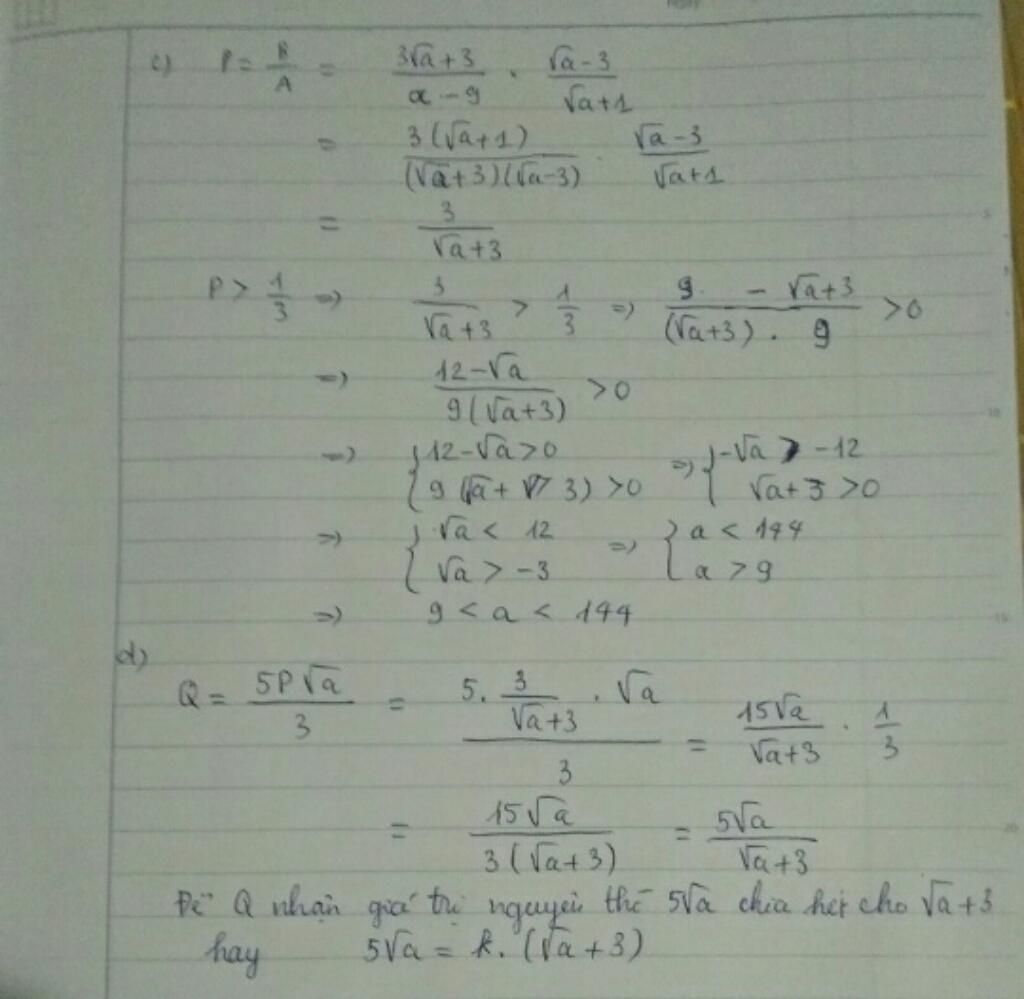 c) P = B/A = (3√a+3)/(a-9) . (√a-3)/(√a+1)
= 3(√a+1)/((√a+3)(√a-3)) . (√a-3)/(√a+1)
= 3/(√a+3)
P > 1/3 => 3/(√a+3) > 1/3 => (9 - √a+3)/((√a+3) . 9) > 0
=> (12-√a)/(9(√a+3)) > 0
=> { 12-√a > 0 ; 9(√a + 3) > 0 => { -√a > -12 ; √a+3 > 0
=> { √a < 12 ; √a > -3 => { a < 144 ; a > 9
=> 9 < a < 144
d)
Q = 5P√a/3 = (5 . 3/(√a+3) . √a)/3 = 15√a/(√a+3) . 1/3
= 15√a/(3(√a+3)) = 5√a/(√a+3)
Để Q nhận giá trị nguyên thì 5√a chia hết cho √a+3
hay 5√a = k. (√a+3)